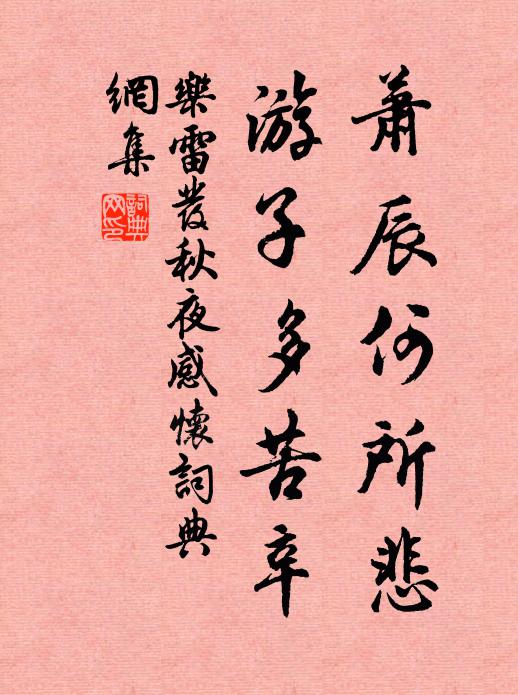 蕭辰何所悲
游子多苦辛
樂雷發秋夜感懷詞典
網集
詞典
网印